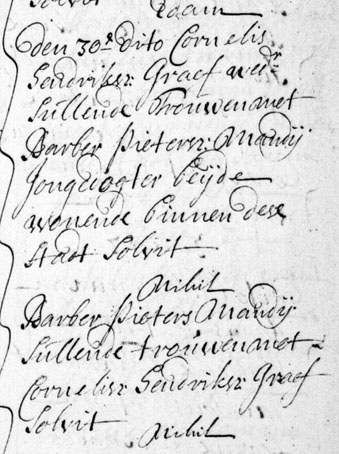 Solvit Edam
den 30e dito Cornelis
Hendriksz Graef wedr
Sullende Trouwen met
Barber Pieters Mandij
Jongedogter beijde
wonende binnen dese
stadt Solvit
Nihil
Barber Pieters Mandij
Sullende trouwen met
Cornelisz Hendriksz Graef
Solvit
Nihil